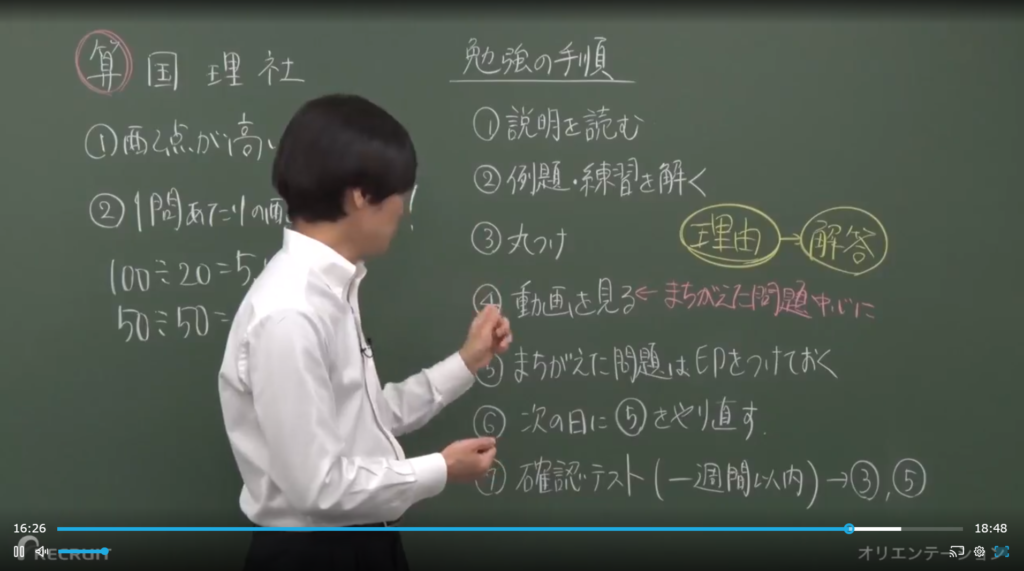 算 国 理 社
①配点が高
②1問あたりの配 !
100÷20=5
50÷50=
勉強の手順
①説明を読む
②例題・練習を解く
③丸つけ
理由→解答
④動画を見る←まちがえた問題中心に
⑤まちがえた問題は印をつけておく
⑥次の日に⑤をやり直す.
⑦確認テスト(一週間以内)→③,⑤
16:26
18:48
RECRUIT
オリエンテーション